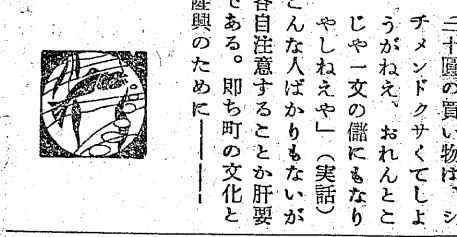 二十圓の買い物は、シ
チメンドクサくてしよ
うがねえ、おれんとこ
じや一文の儲にもなり
やしねえや」（実話）
こんな人ばかりもないが
各自注意することか肝要
である。即ち町の文化と
産興のために———